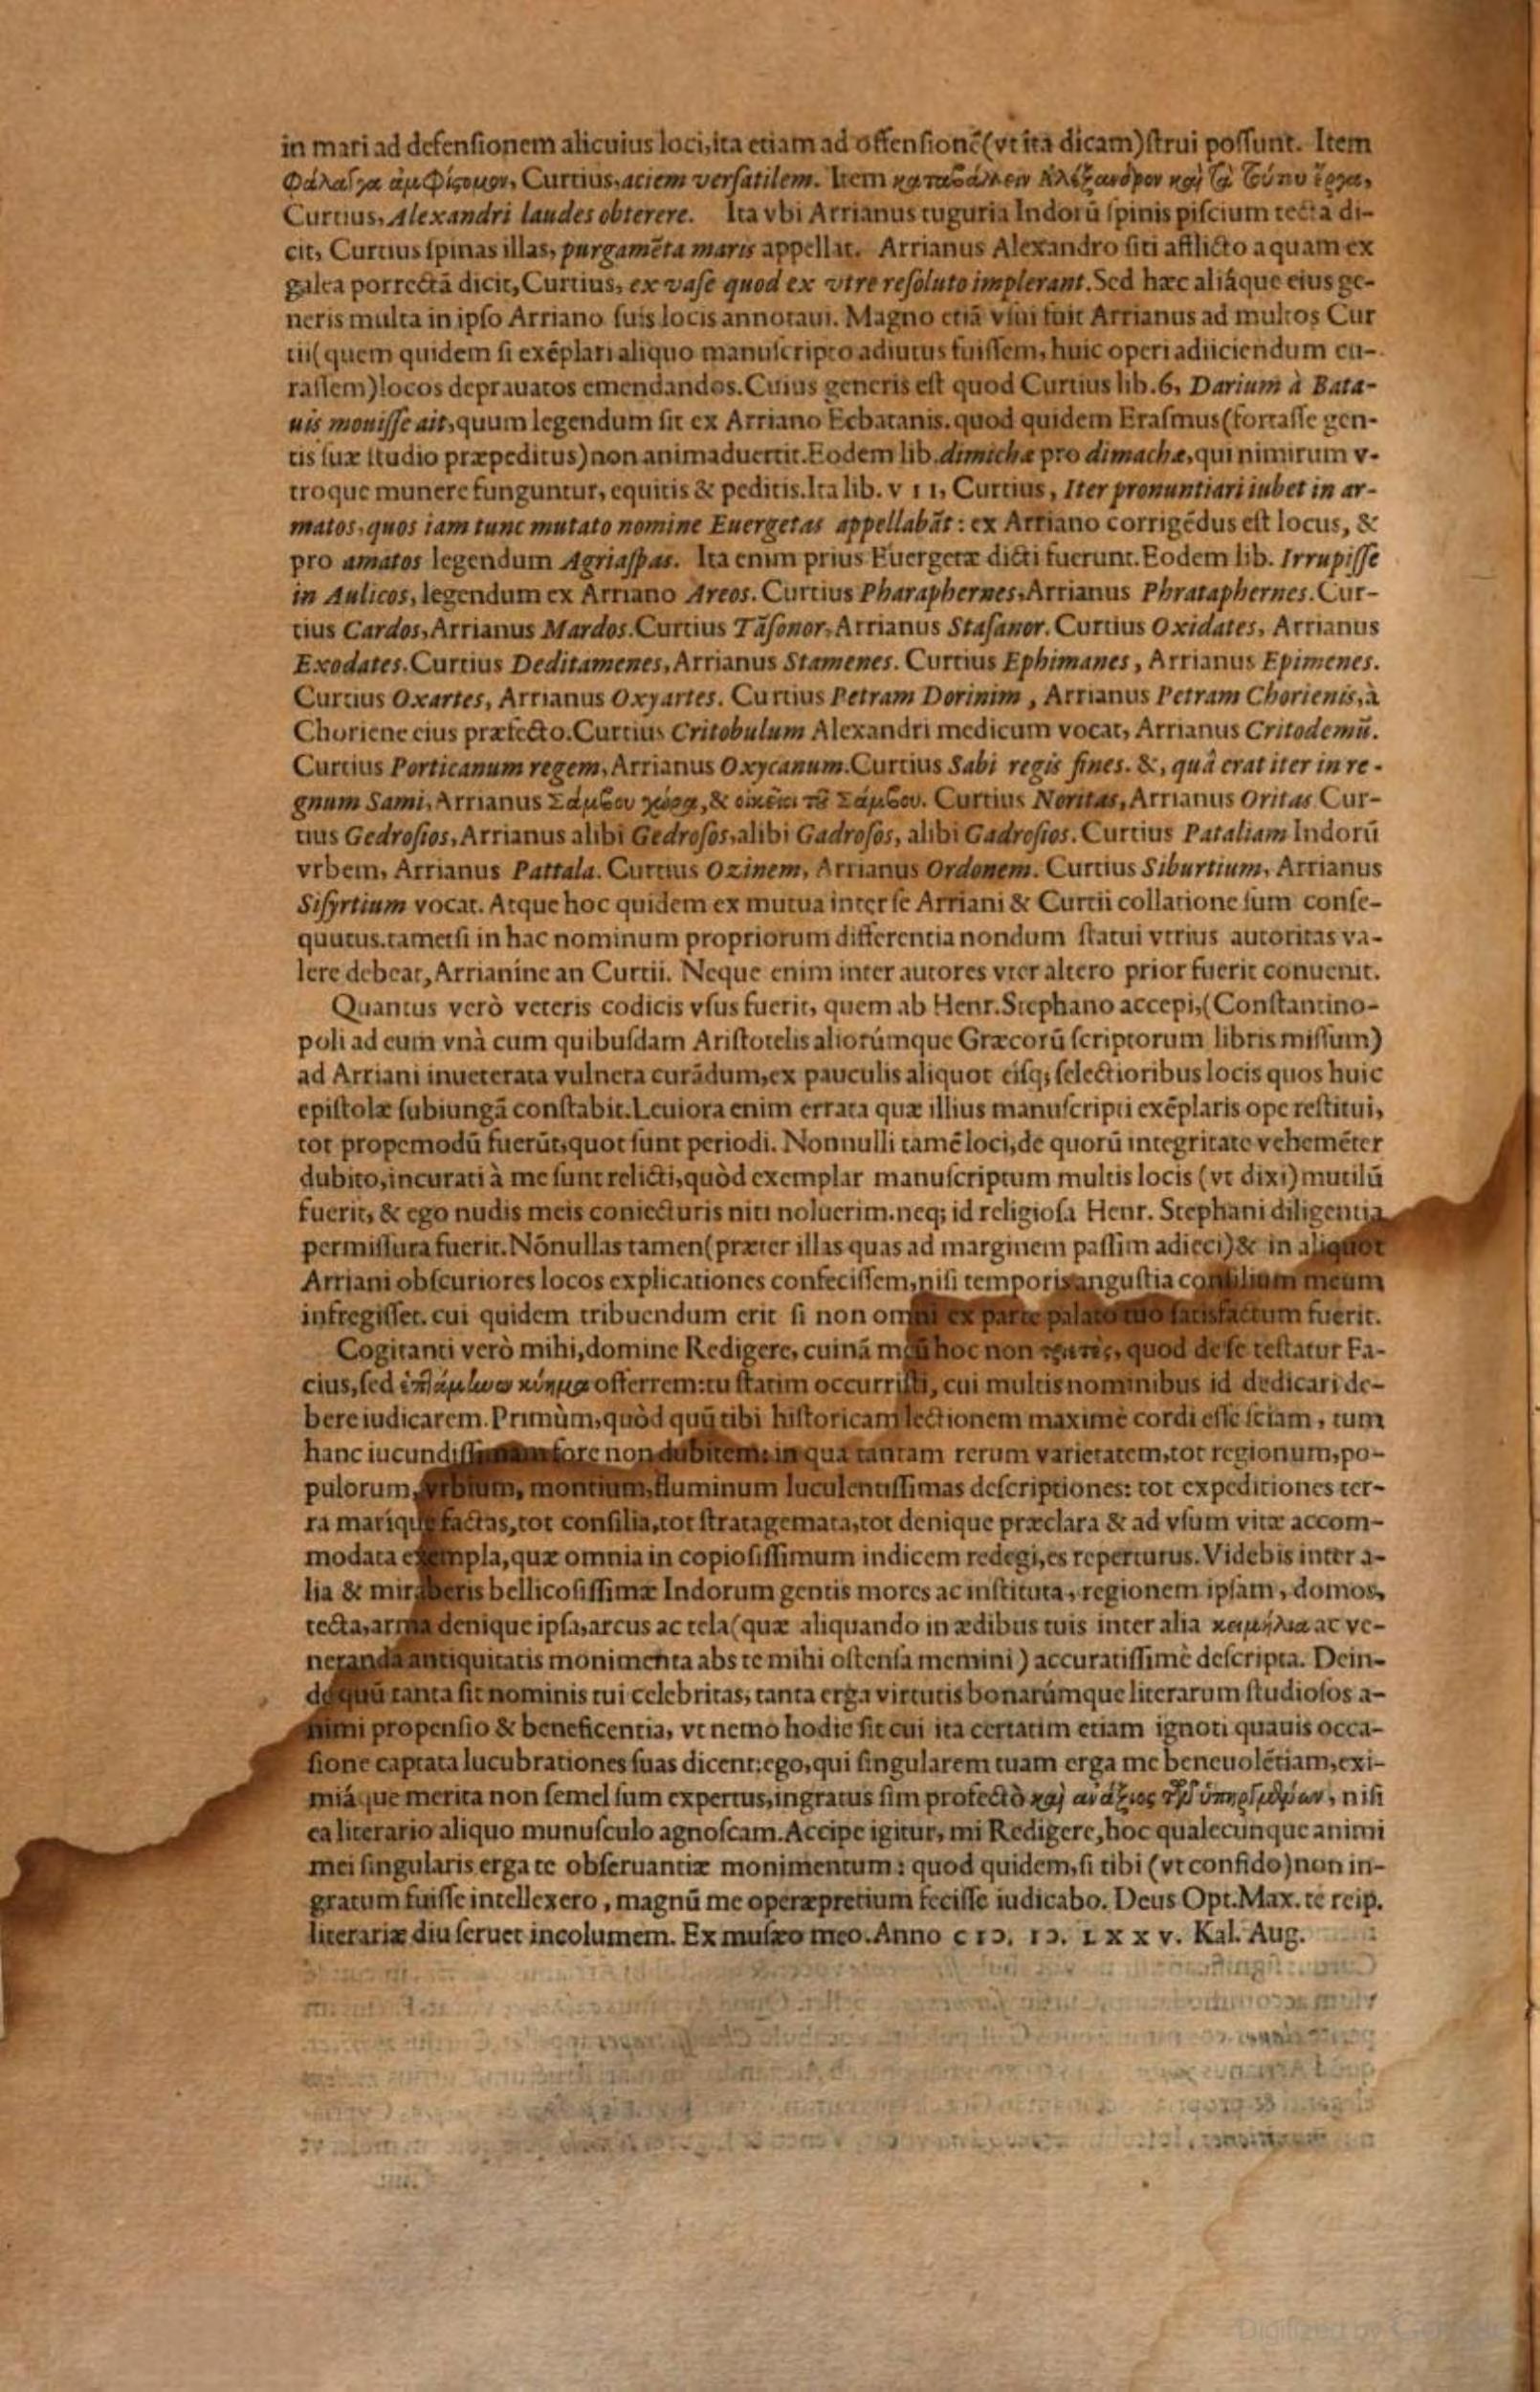 in mari ad defensionem alicuius loci, ita etiam ad offensionẽ (vt ita dicam) strui possunt. Item
Φάλαγγα ἀμφίστομον, Curtius, aciem versatilem. Item καταβάλλειν Ἀλέξανδρον καὶ τὰ τούτου ἔργα,
Curtius, Alexandri laudes obterere. Ita vbi Arrianus tuguria Indorũ spinis piscium tecta di-
cit, Curtius spinas illas, purgamẽta maris appellat. Arrianus Alexandro siti afflicto aquam ex
galea porrectã dicit, Curtius, ex vase quod ex vtre resoluto implerant. Sed hæc aliáque eius ge-
neris multa in ipso Arriano suis locis annotaui. Magno etiã vsui fuit Arrianus ad multos Cur
tii (quem quidem si exẽplari aliquo manuscripto adiutus fuissem, huic operi adiiciendum cu-
rassem) locos deprauatos emendandos. Cuius generis est quod Curtius lib. 6, Darium à Bata-
uis mouisse ait, quum legendum sit ex Arriano Ecbatanis. quod quidem Erasmus (fortasse gen-
tis suæ studio præpeditus) non animaduertit. Eodem lib. dimichæ pro dimachæ, qui nimirum v-
troque munere funguntur, equitis & peditis. Ita lib. v 1 1, Curtius, Iter pronuntiari iubet in ar-
matos, quos iam tunc mutato nomine Euergetas appellabãt: ex Arriano corrigẽdus est locus, &
pro amatos legendum Agriaspas. Ita enim prius Euergetæ dicti fuerunt. Eodem lib. Irrupisse
in Aulicos, legendum ex Arriano Areos. Curtius Pharaphernes, Arrianus Phrataphernes. Cur-
tius Cardos, Arrianus Mardos. Curtius Tãsonor, Arrianus Stasanor. Curtius Oxidates, Arrianus
Exodates. Curtius Deditamenes, Arrianus Stamenes. Curtius Ephimanes, Arrianus Epimenes.
Curtius Oxartes, Arrianus Oxyartes. Curtius Petram Dorinim, Arrianus Petram Chorienis, à
Choriene eius præfecto. Curtius Critobulum Alexandri medicum vocat, Arrianus Critodemũ.
Curtius Porticanum regem, Arrianus Oxycanum. Curtius Sabi regis fines. &, quâ erat iter in re-
gnum Sami, Arrianus Σάμβου χώρα, & οἰκεῖοι τοῦ Σάμβου. Curtius Noritas, Arrianus Oritas Cur-
tius Gedrosios, Arrianus alibi Gedrosos, alibi Gadrosos, alibi Gadrosios. Curtius Pataliam Indorũ
vrbem, Arrianus Pattala. Curtius Ozinem, Arrianus Ordonem. Curtius Siburtium, Arrianus
Sisyrtium vocat. Atque hoc quidem ex mutua inter se Arriani & Curtii collatione sum conse-
quutus. tametsi in hac nominum propriorum differentia nondum statui vtrius autoritas va-
lere debeat, Arrianíne an Curtii. Neque enim inter autores vter altero prior fuerit conuenit.
Quantus verò veteris codicis vsus fuerit, quem ab Henr. Stephano accepi, (Constantino-
poli ad eum vnà cum quibusdam Aristotelis aliorúmque Græcorũ scriptorum libris missum)
ad Arriani inueterata vulnera curãdum, ex pauculis aliquot eisq; selectioribus locis quos huic
epistolæ subiungã constabit. Leuiora enim errata quæ illius manuscripti exẽplaris ope restitui,
tot propemodũ fuerũt, quot sunt periodi. Nonnulli tamẽ loci, de quorũ integritate vehemẽter
dubito, incurati à me sunt relicti, quòd exemplar manuscriptum multis locis (vt dixi) mutilũ
fuerit, & ego nudis meis coniecturis niti noluerim. neq; id religiosa Henr. Stephani diligentia
permissura fuerit. Nõnullas tamen (præter illas quas ad marginem passim adieci) & in aliquot
Arriani obscuriores locos explicationes confecissem, nisi temporis angustia consilium meum
infregisset. cui quidem tribuendum erit si non omni ex parte palato tuo satisfactum fuerit.
Cogitanti verò mihi, domine Redigere, cuinã meũ hoc non τριετὲς, quod de se testatur Fa-
cius, sed ἑπτάμηνον κύημα offerrem: tu statim occurristi, cui multis nominibus id dedicari de-
bere iudicarem. Primùm, quòd quũ tibi historicam lectionem maximè cordi esse sciam, tum
hanc iucundissimam fore non dubitem: in qua tantam rerum varietatem, tot regionum, po-
pulorum, vrbium, montium, fluminum luculentissimas descriptiones: tot expeditiones ter-
ra maríque factas, tot consilia, tot stratagemata, tot denique præclara & ad vsum vitæ accom-
modata exempla, quæ omnia in copiosissimum indicem redegi, es reperturus. Videbis inter a-
lia & miraberis bellicosissimæ Indorum gentis mores ac instituta, regionem ipsam, domos,
tecta, arma denique ipsa, arcus ac tela (quæ aliquando in ædibus tuis inter alia κειμήλια ac ve-
neranda antiquitatis monimenta abs te mihi ostensa memini) accuratissimè descripta. Dein-
de quũ tanta sit nominis tui celebritas, tanta erga virtutis bonarúmque literarum studiosos a-
nimi propensio & beneficentia, vt nemo hodie sit cui ita certatim etiam ignoti quauis occa-
sione captata lucubrationes suas dicent: ego, qui singularem tuam erga me beneuolẽtiam, exi-
miáque merita non semel sum expertus, ingratus sim profectò καὶ ἀνάξιος τῶν ὑπηργμένων, nisi
ea literario aliquo munusculo agnoscam. Accipe igitur, mi Redigere, hoc qualecunque animi
mei singularis erga te obseruantiæ monimentum: quod quidem, si tibi (vt confido) non in-
gratum fuisse intellexero, magnũ me operæpretium fecisse iudicabo. Deus Opt. Max. te reip.
literariæ diu seruet incolumem. Ex musæo meo. Anno c Iↄ. Iↄ. L x x v. Kal. Aug.